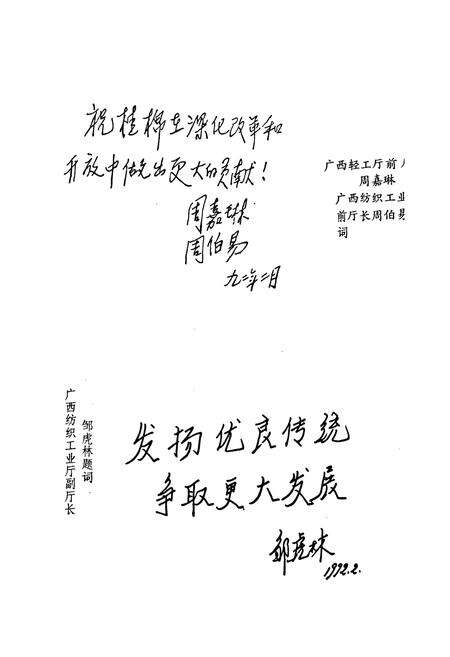 祝桂棉在深化改革和
开放中做出更大的贡献！
周嘉琳
周伯易
九二年二月
广西轻工厅前
周嘉琳
广西纺织工业
前厅长周伯易
词
广西纺织工业厅副厅长
邹虎林题词
发扬优良传统
争取更大发展
邹虎林
1992.2.